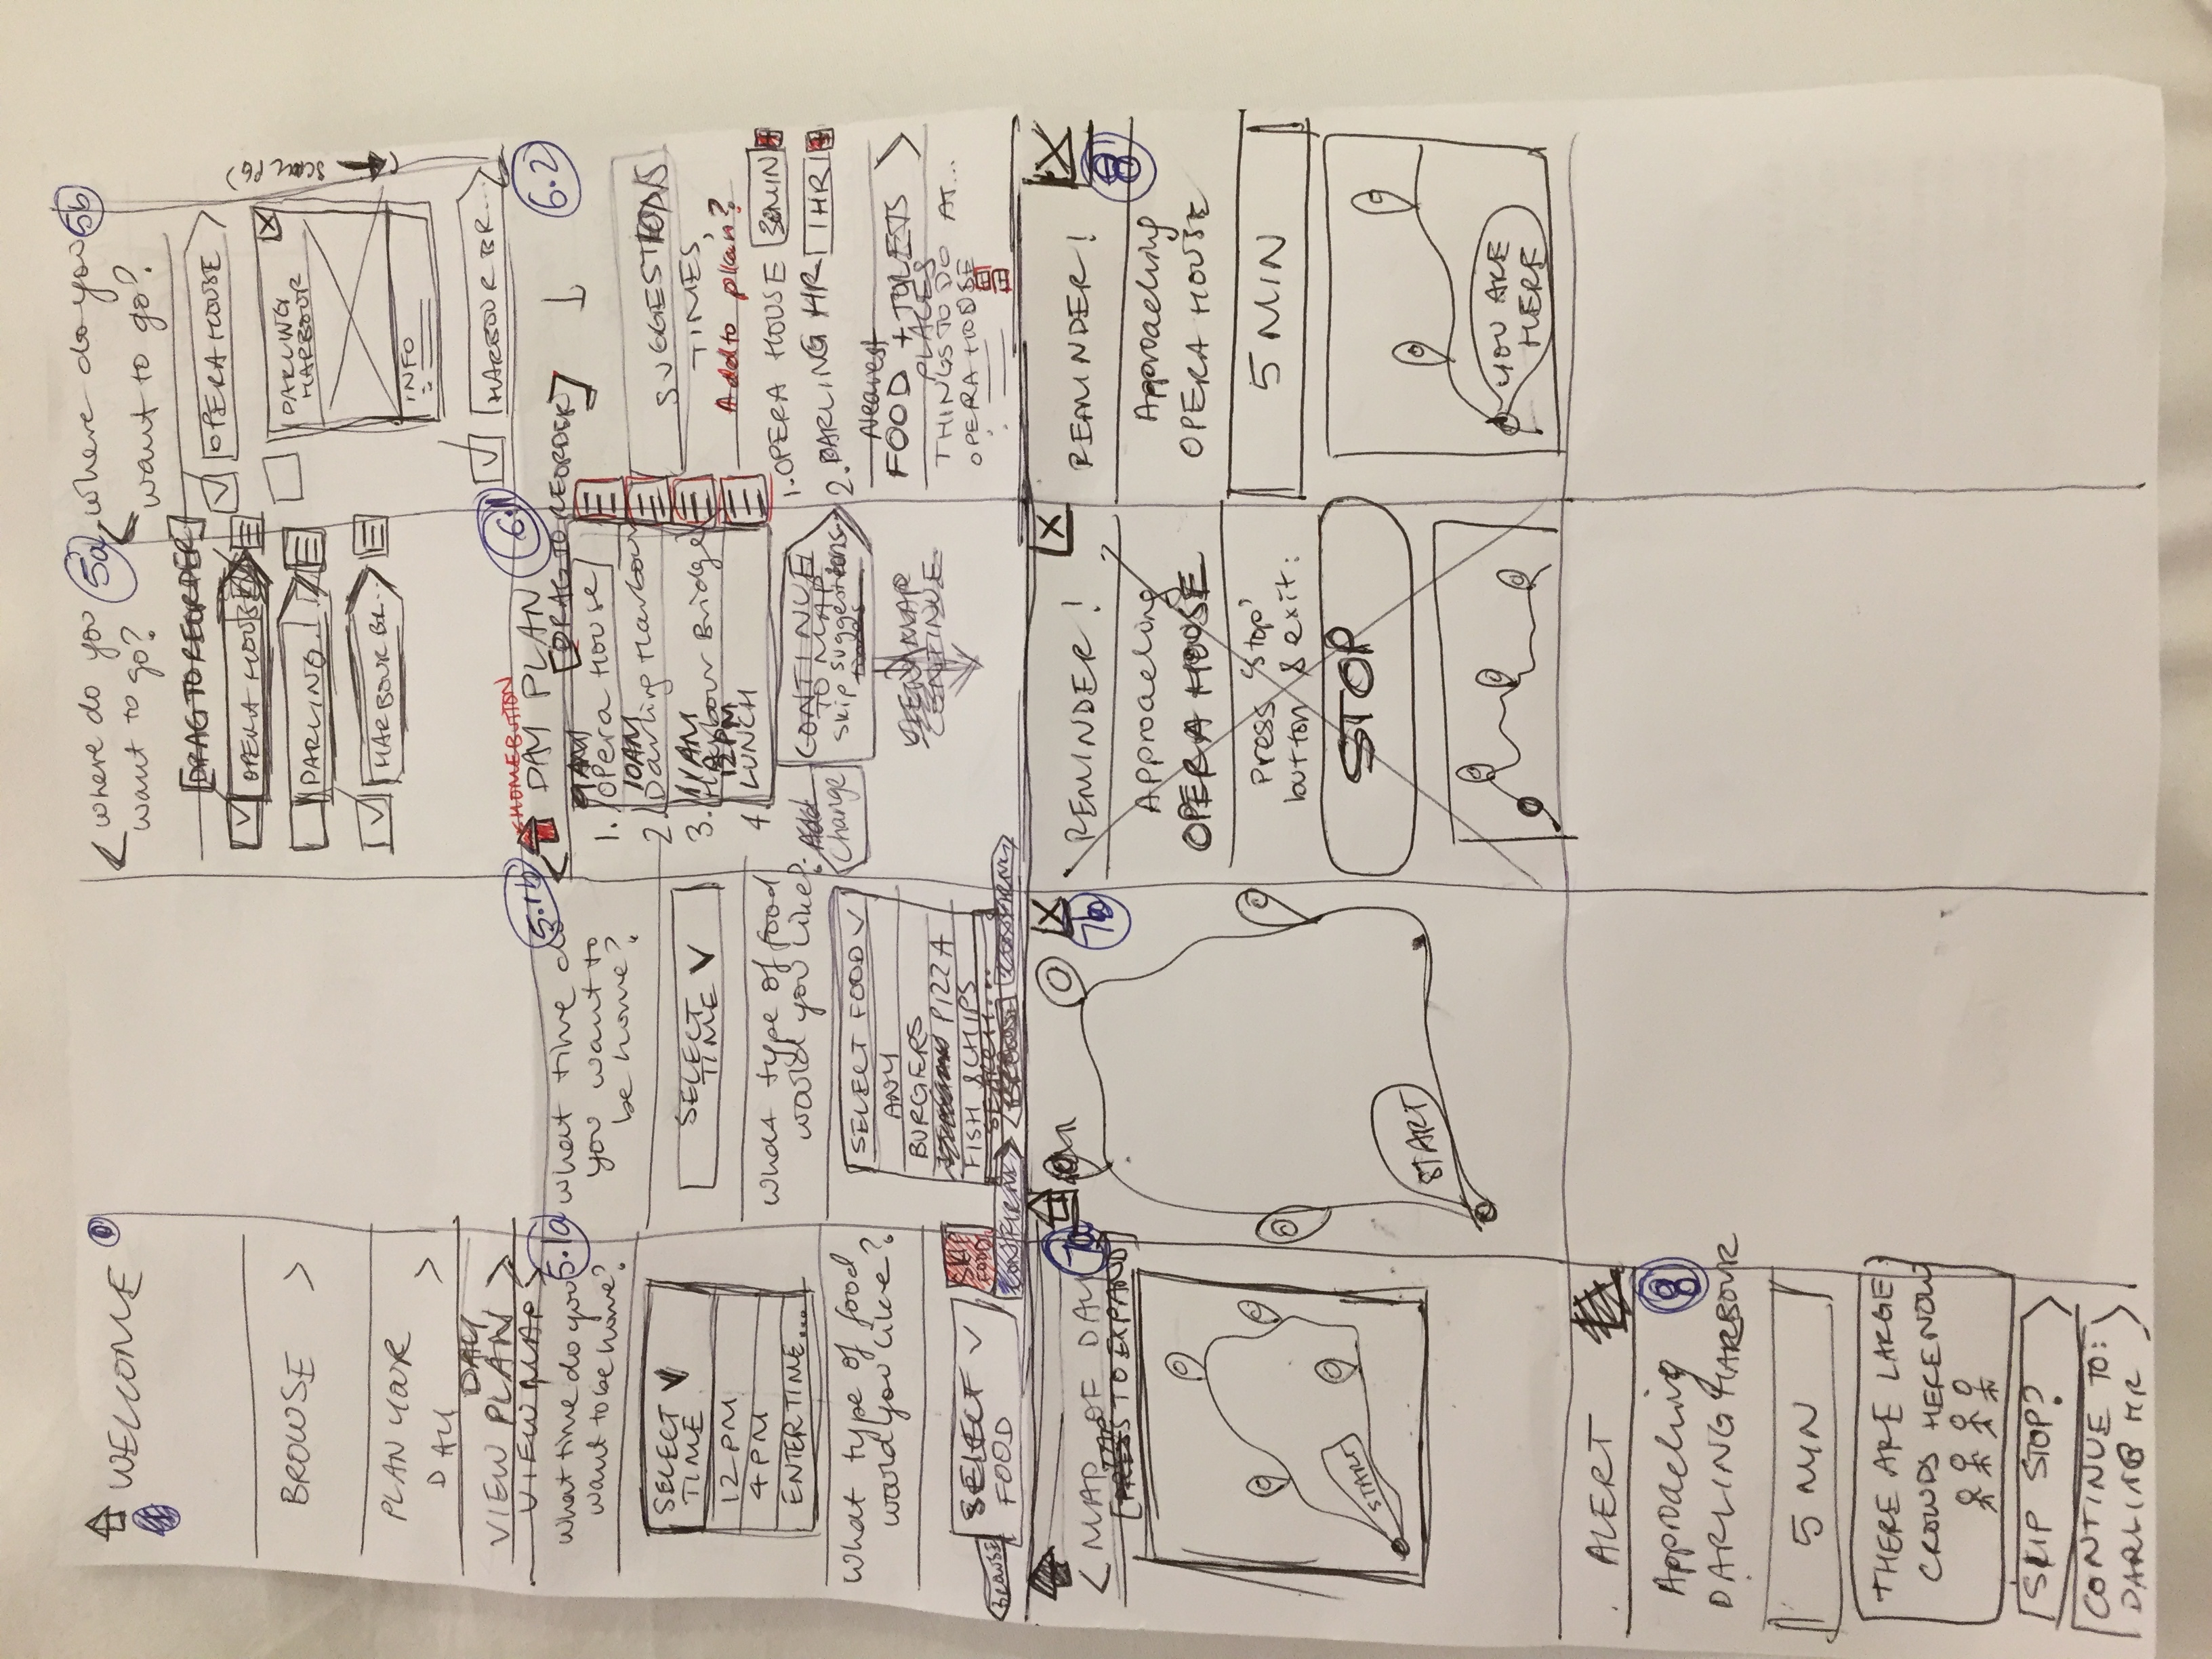 WELCOME
BROWSE >
PLAN YOUR
DAY >
DAY
VIEW PLAN >
VIEW MAP <
5a
< where do you
want to go?
[DRAG TO REORDER]
OPERA HOUSE
DARLING...
HARBOUR BR...
5b
< where do you
want to go?
OPERA HOUSE
DARLING
HARBOUR
X
INFO
HARBOUR BR...
5.1a
what time do you
want to be home?
SELECT
TIME
12 PM
4 PM
ENTER TIME...
What type of food
would you like?
SELECT
FOOD
SKIP
FOOD
BROWSE
CONFIRM
5.1b
what time do
you want to
be home?
SELECT
TIME
What type of food
would you like?
SELECT FOOD
ANY
BURGERS
PIZZA
FISH & CHIPS
SEARCH...
BROWSE
CONFIRM
<HOME BUTTON
6.1
< DAY PLAN
[DRAG TO REORDER]
9AM
1. Opera House
10AM
2. Darling Harbour
11AM
3. Harbour Bridge
12PM
4. LUNCH
Add
Change
CONTINUE
TO MAP
Skip suggestions
times
VIEW MAP
CONTINUE
6.2
SUGGESTIONS
TIMES,
Add to plan?
1. OPERA HOUSE 30MIN +
2. DARLING HR 1HR +
Nearest
FOOD + TOILETS >
PLACES
THINGS TO DO AT...
OPERA HOUSE
7a
< MAP OF DAY
TAP
[PRESS TO EXPAND]
START
X
7b
START
X
REMINDER!
Approaching
OPERA HOUSE
Press 'Stop'
button & exit:
STOP
X
REMINDER!
8
Approaching
OPERA HOUSE
5 MIN
YOU ARE
HERE
ALERT
Approaching
DARLING HARBOUR
5 MIN
THERE ARE LARGE
CROWDS HERE NOW
SKIP STOP?
CONTINUE TO:
DARLING HR